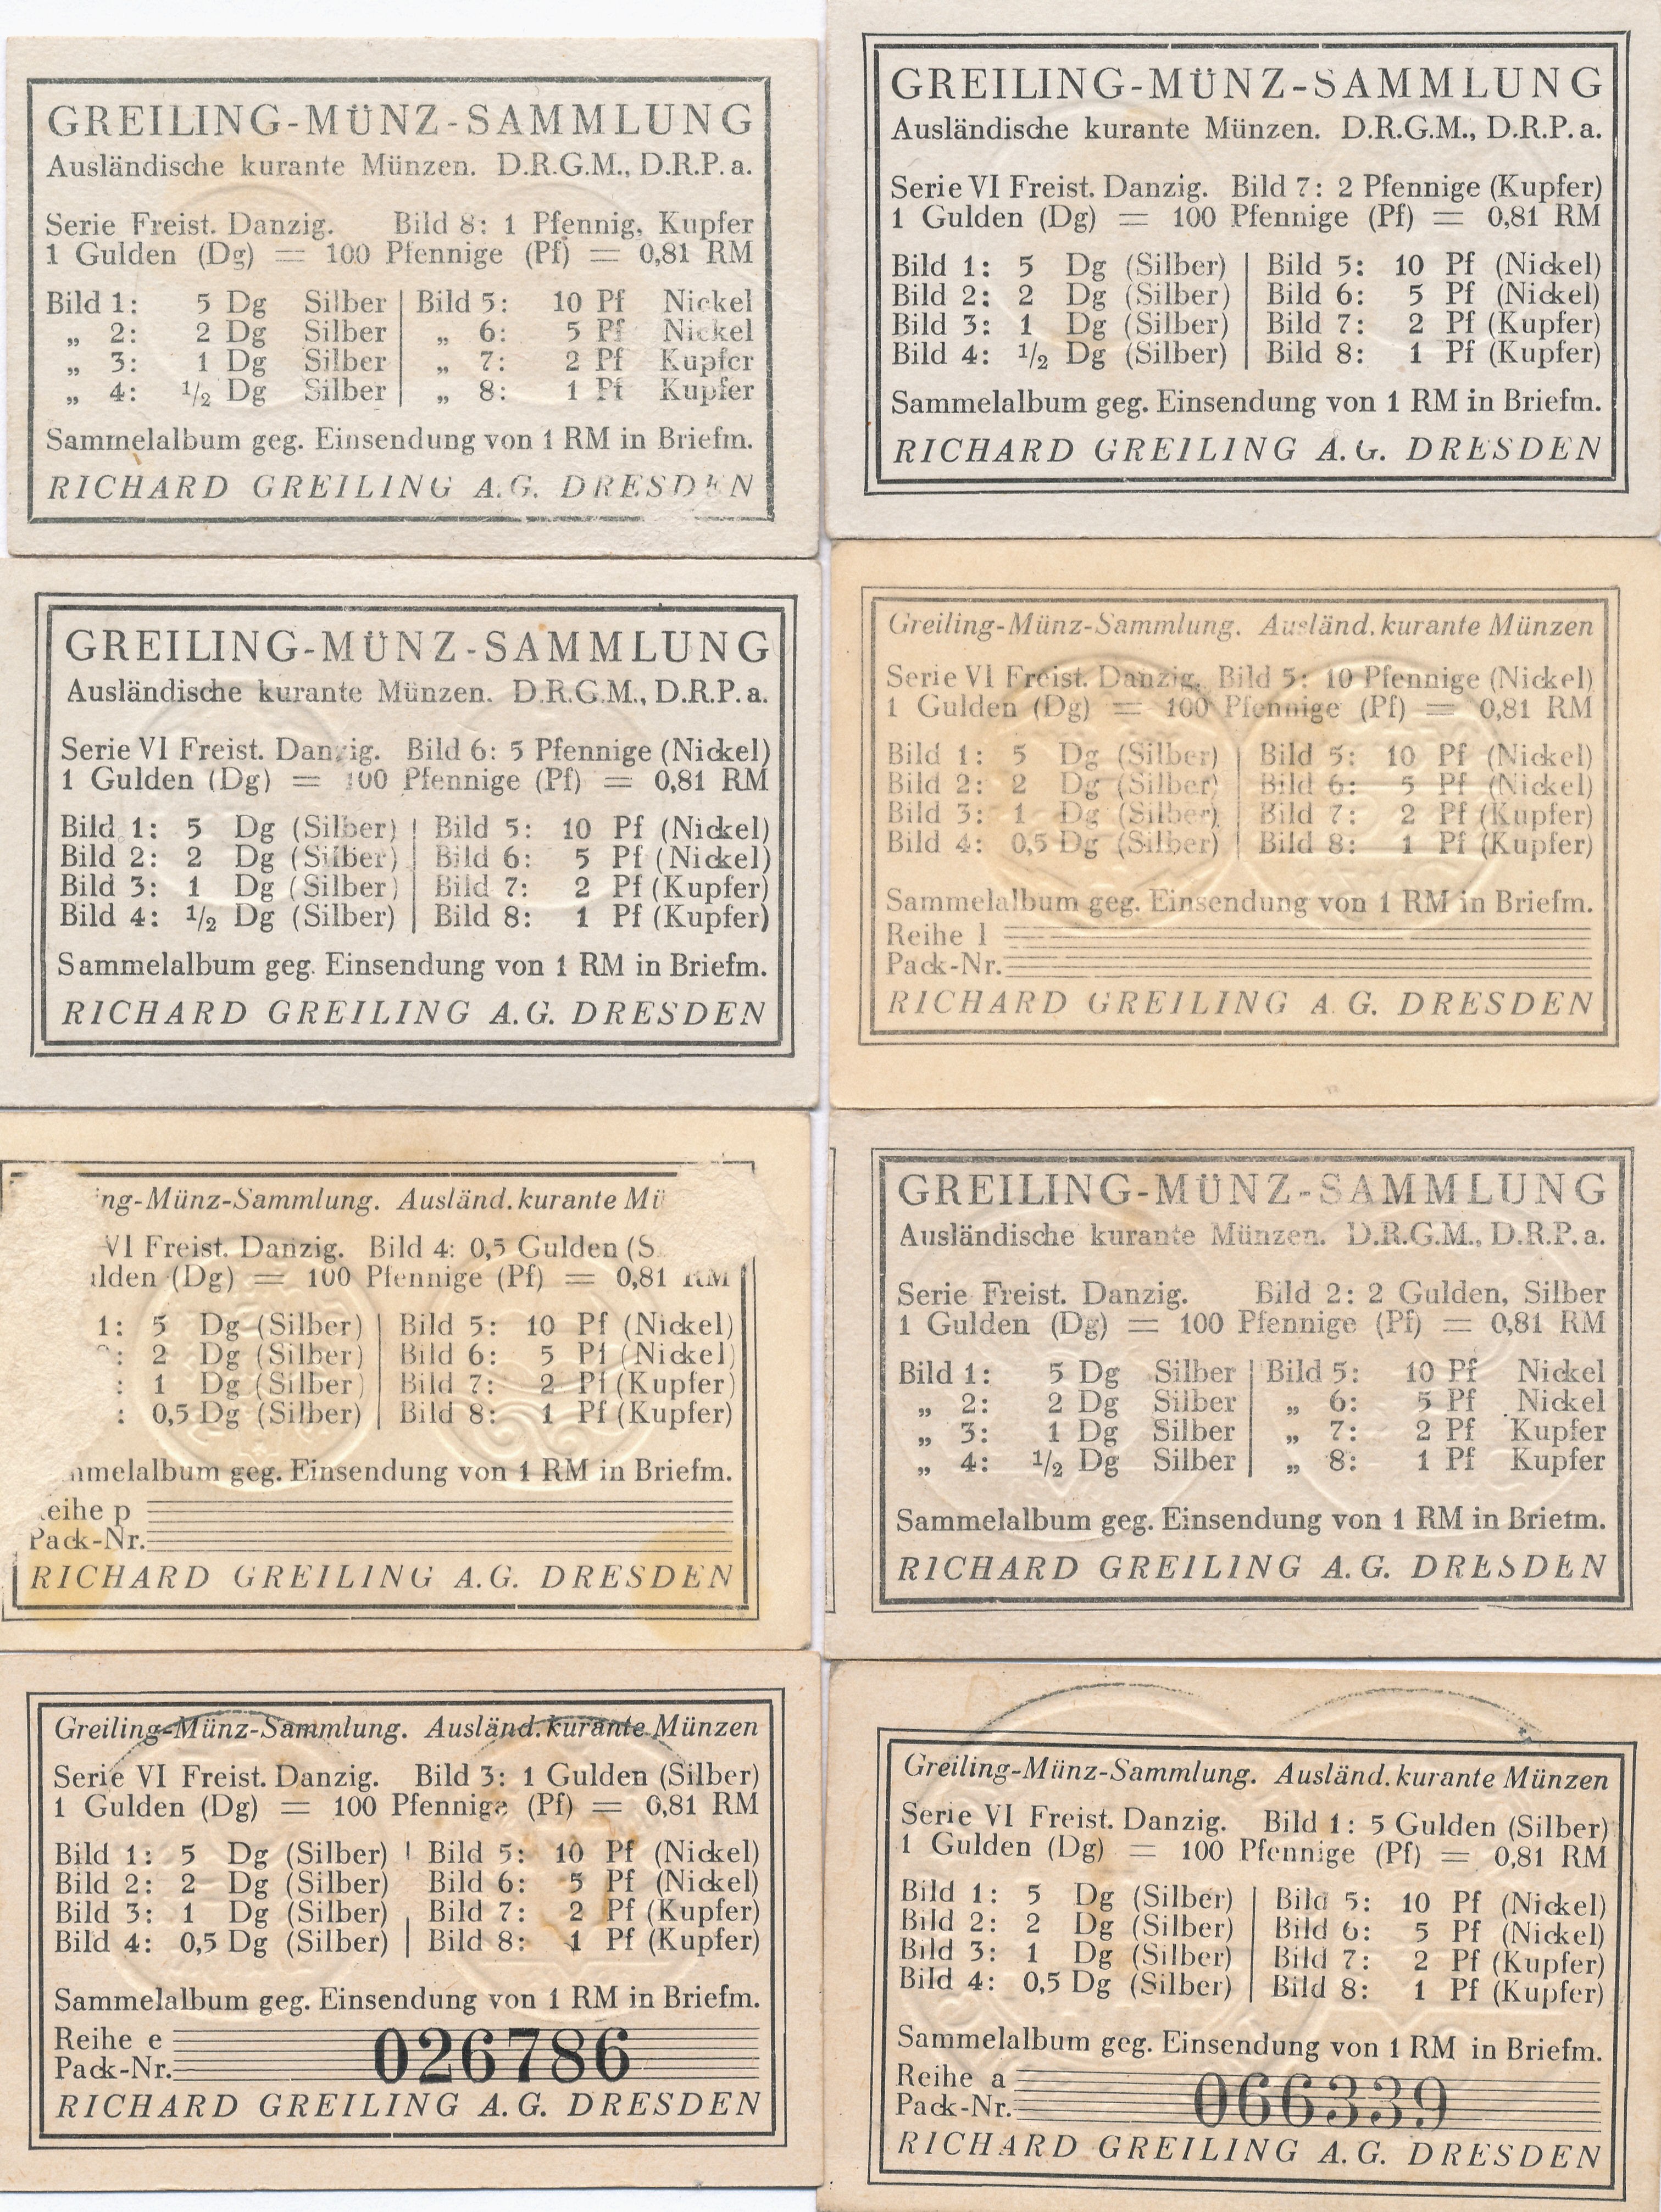 GREILING-MÜNZ-SAMMLUNG
Ausländische kurante Münzen. D.R.G.M., D.R.P. a.
Serie Freist. Danzig. Bild 8: 1 Pfennig, Kupfer
1 Gulden (Dg) = 100 Pfennige (Pf) = 0,81 RM
Bild 1: 5 Dg Silber | Bild 5: 10 Pf Nickel
„ 2: 2 Dg Silber | „ 6: 5 Pf Nickel
„ 3: 1 Dg Silber | „ 7: 2 Pf Kupfer
„ 4: 1/2 Dg Silber | „ 8: 1 Pf Kupfer
Sammelalbum geg. Einsendung von 1 RM in Briefm.
RICHARD GREILING A.G. DRESDEN
GREILING-MÜNZ-SAMMLUNG
Ausländische kurante Münzen. D.R.G.M., D.R.P. a.
Serie VI Freist. Danzig. Bild 7: 2 Pfennige (Kupfer)
1 Gulden (Dg) = 100 Pfennige (Pf) = 0,81 RM
Bild 1: 5 Dg (Silber) | Bild 5: 10 Pf (Nickel)
Bild 2: 2 Dg (Silber) | Bild 6: 5 Pf (Nickel)
Bild 3: 1 Dg (Silber) | Bild 7: 2 Pf (Kupfer)
Bild 4: 1/2 Dg (Silber) | Bild 8: 1 Pf (Kupfer)
Sammelalbum geg. Einsendung von 1 RM in Briefm.
RICHARD GREILING A.G. DRESDEN
GREILING-MÜNZ-SAMMLUNG
Ausländische kurante Münzen. D.R.G.M., D.R.P. a.
Serie VI Freist. Danzig. Bild 6: 5 Pfennige (Nickel)
1 Gulden (Dg) = 100 Pfennige (Pf) = 0,81 RM
Bild 1: 5 Dg (Silber) | Bild 5: 10 Pf (Nickel)
Bild 2: 2 Dg (Silber) | Bild 6: 5 Pf (Nickel)
Bild 3: 1 Dg (Silber) | Bild 7: 2 Pf (Kupfer)
Bild 4: 1/2 Dg (Silber) | Bild 8: 1 Pf (Kupfer)
Sammelalbum geg. Einsendung von 1 RM in Briefm.
RICHARD GREILING A.G. DRESDEN
Greiling-Münz-Sammlung. Ausländ. kurante Münzen
Serie VI Freist. Danzig. Bild 5: 10 Pfennige (Nickel)
1 Gulden (Dg) = 100 Pfennige (Pf) = 0,81 RM
Bild 1: 5 Dg (Silber) | Bild 5: 10 Pf (Nickel)
Bild 2: 2 Dg (Silber) | Bild 6: 5 Pf (Nickel)
Bild 3: 1 Dg (Silber) | Bild 7: 2 Pf (Kupfer)
Bild 4: 0,5 Dg (Silber) | Bild 8: 1 Pf (Kupfer)
Sammelalbum geg. Einsendung von 1 RM in Briefm.
Reihe l
Pack-Nr.
RICHARD GREILING A.G. DRESDEN
ng-Münz-Sammlung. Ausländ. kurante Mü
VI Freist. Danzig. Bild 4: 0,5 Gulden (S
lden (Dg) = 100 Pfennige (Pf) = 0,81 RM
1: 5 Dg (Silber) | Bild 5: 10 Pf (Nickel)
: 2 Dg (Silber) | Bild 6: 5 Pf (Nickel)
: 1 Dg (Silber) | Bild 7: 2 Pf (Kupfer)
: 0,5 Dg (Silber) | Bild 8: 1 Pf (Kupfer)
mmelalbum geg. Einsendung von 1 RM in Briefm.
eihe p
Pack-Nr.
RICHARD GREILING A.G. DRESDEN
GREILING-MÜNZ-SAMMLUNG
Ausländische kurante Münzen. D.R.G.M., D.R.P. a.
Serie Freist. Danzig. Bild 2: 2 Gulden, Silber
1 Gulden (Dg) = 100 Pfennige (Pf) = 0,81 RM
Bild 1: 5 Dg Silber | Bild 5: 10 Pf Nickel
„ 2: 2 Dg Silber | „ 6: 5 Pf Nickel
„ 3: 1 Dg Silber | „ 7: 2 Pf Kupfer
„ 4: 1/2 Dg Silber | „ 8: 1 Pf Kupfer
Sammelalbum geg. Einsendung von 1 RM in Briefm.
RICHARD GREILING A.G. DRESDEN
Greiling-Münz-Sammlung. Ausländ. kurante Münzen
Serie VI Freist. Danzig. Bild 3: 1 Gulden (Silber)
1 Gulden (Dg) = 100 Pfennige (Pf) = 0,81 RM
Bild 1: 5 Dg (Silber) | Bild 5: 10 Pf (Nickel)
Bild 2: 2 Dg (Silber) Bild 6: 5 Pf (Nickel)
Bild 3: 1 Dg (Silber) | Bild 7: 2 Pf (Kupfer)
Bild 4: 0,5 Dg (Silber) | Bild 8: 1 Pf (Kupfer)
Sammelalbum geg. Einsendung von 1 RM in Briefm.
Reihe e
Pack-Nr. 026786
RICHARD GREILING A.G. DRESDEN
Greiling-Münz-Sammlung. Ausländ. kurante Münzen
Serie VI Freist. Danzig. Bild 1: 5 Gulden (Silber)
1 Gulden (Dg) = 100 Pfennige (Pf) = 0,81 RM
Bild 1: 5 Dg (Silber) | Bild 5: 10 Pf (Nickel)
Bild 2: 2 Dg (Silber) | Bild 6: 5 Pf (Nickel)
Bild 3: 1 Dg (Silber) | Bild 7: 2 Pf (Kupfer)
Bild 4: 0,5 Dg (Silber) | Bild 8: 1 Pf (Kupfer)
Sammelalbum geg. Einsendung von 1 RM in Briefm.
Reihe a
Pack-Nr. 066339
RICHARD GREILING A.G. DRESDEN